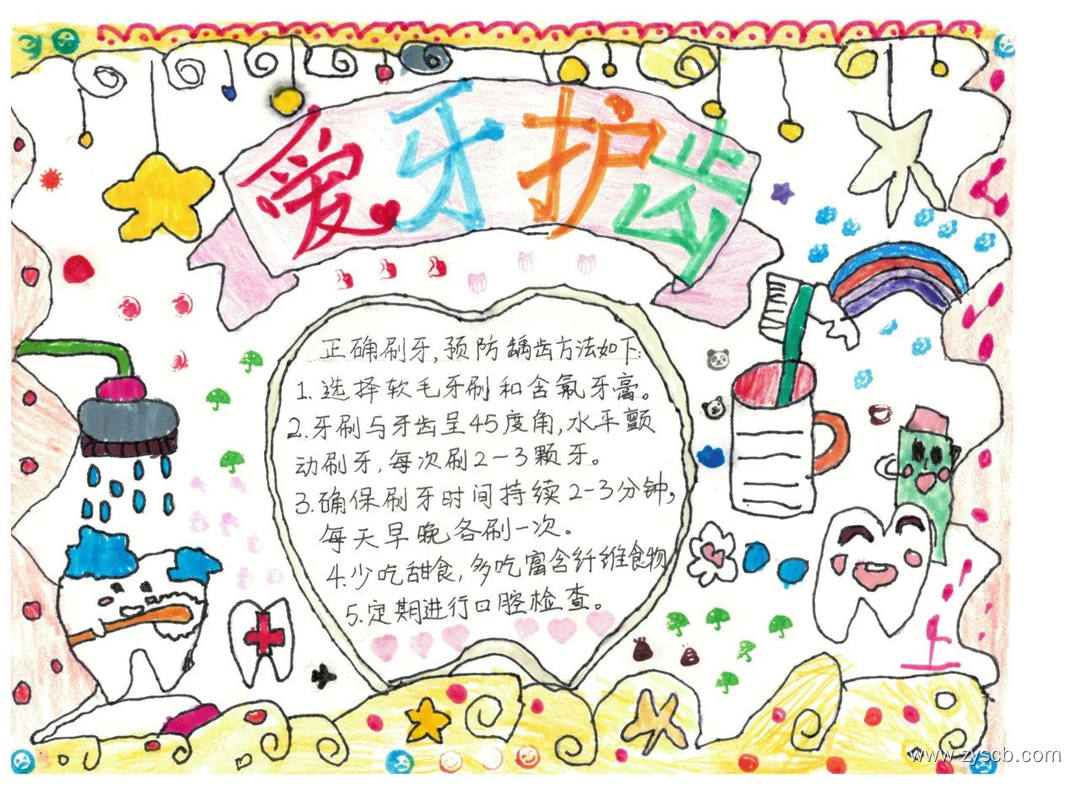 爱牙护齿
正确刷牙,预防龋齿方法如下:
1.选择软毛牙刷和含氟牙膏。
2.牙刷与牙齿呈45度角,水平颤
动刷牙,每次刷2-3颗牙。
3.确保刷牙时间持续2-3分钟,
每天早晚各刷一次。
4.少吃甜食,多吃富含纤维食物
5.定期进行口腔检查。
www.zyscb.com